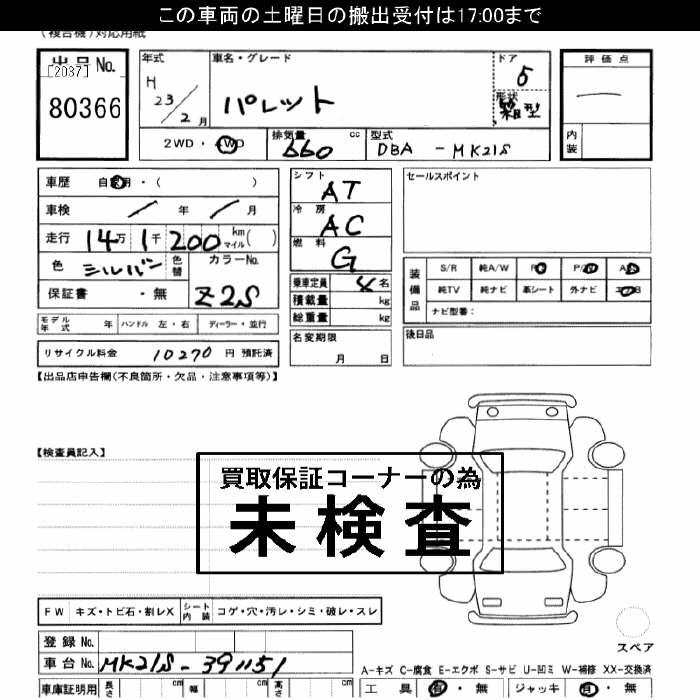 この車両の土曜日の搬出受付は17:00まで
(複合機)対応用紙
出品No. 年式 車名・グレード ドア 評価点
[2037] H 5
80366 23/2月 パレット 形状 箱型
2WD・4WD 排気量 660 cc 型式 DBA - MK21S 内装
車歴 自家用・( ) シフト AT セールスポイント
車検 年 月 冷房 AC
走行 14万 1千 200 km マイル( ) 燃料 G
色 シルバー 色替 カラーNo. 装備品 S/R 純A/W P/S P/W A/B
保証書 ・無 Z2S 乗車定員 4名 純TV 純ナビ 革シート 外ナビ
積載量 kg ナビ型番:
モデル年式 年 ハンドル 左・右 ディーラー・並行 総重量 kg 後日品
リサイクル料金 10270 円 預託済 名変期限 月 日
【出品店申告欄(不良箇所・欠品・注意事項等)】
【検査員記入】
買取保証コーナーの為
未検査
FW キズ・トビ石・割レX シート内装 コゲ・穴・汚レ・シミ・破レ・スレ
登録No. スペア
車台No. MK21S-391151 A-キズ C-腐食 E-エクボ S-サビ U-凹ミ W-補修 XX-交換済
車庫証明用 長さ cm 幅 cm 高さ cm 工具 有・無 ジャッキ 有・無